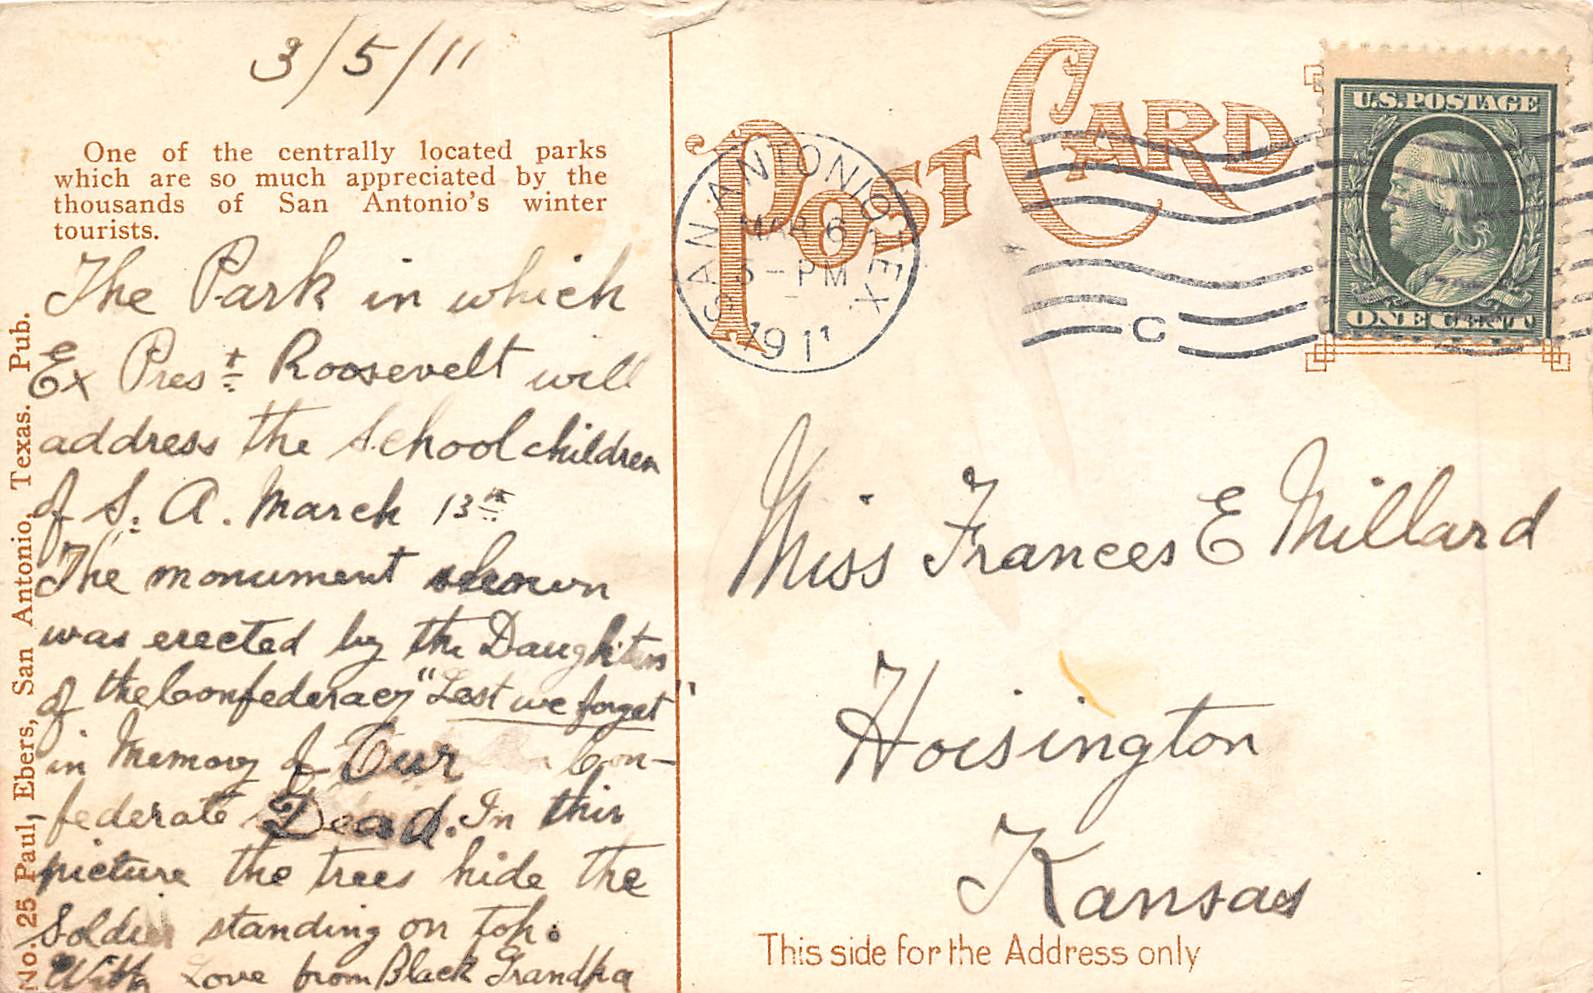 3/5/11
One of the centrally located parks
which are so much appreciated by the
thousands of San Antonio's winter
tourists.
The Park in which
Ex Prest Roosevelt will
address the School children
of S. A. March 13th
The monument shown
was erected by the Daughters
of the Confederacy "Lest we forget"
in Memory of Our Con-
federate Dead. In this
picture the trees hide the
Soldier standing on top.
With Love from Black Grandpa
No. 25 Paul, Ebers, San Antonio, Texas. Pub.
POST CARD
SAN ANTONIO, TEX.
MAR 6
5-PM
1911
C
U.S. POSTAGE
ONE CENT
Miss Frances E Millard
Hoisington
Kansas
This side for the Address only